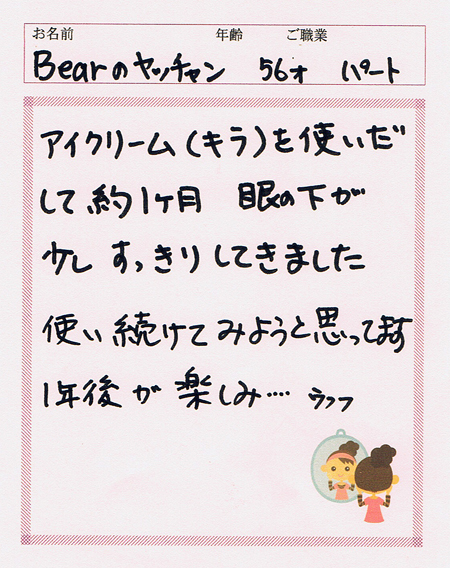 お名前 年齢 ご職業
Bearのヤッチャン 56才 パート
アイクリーム(キラ)を使いだ
して約1ケ月 眼の下が
少し すっきりしてきました
使い続けてみようと思ってます
1年後が楽しみ…. ウフフ